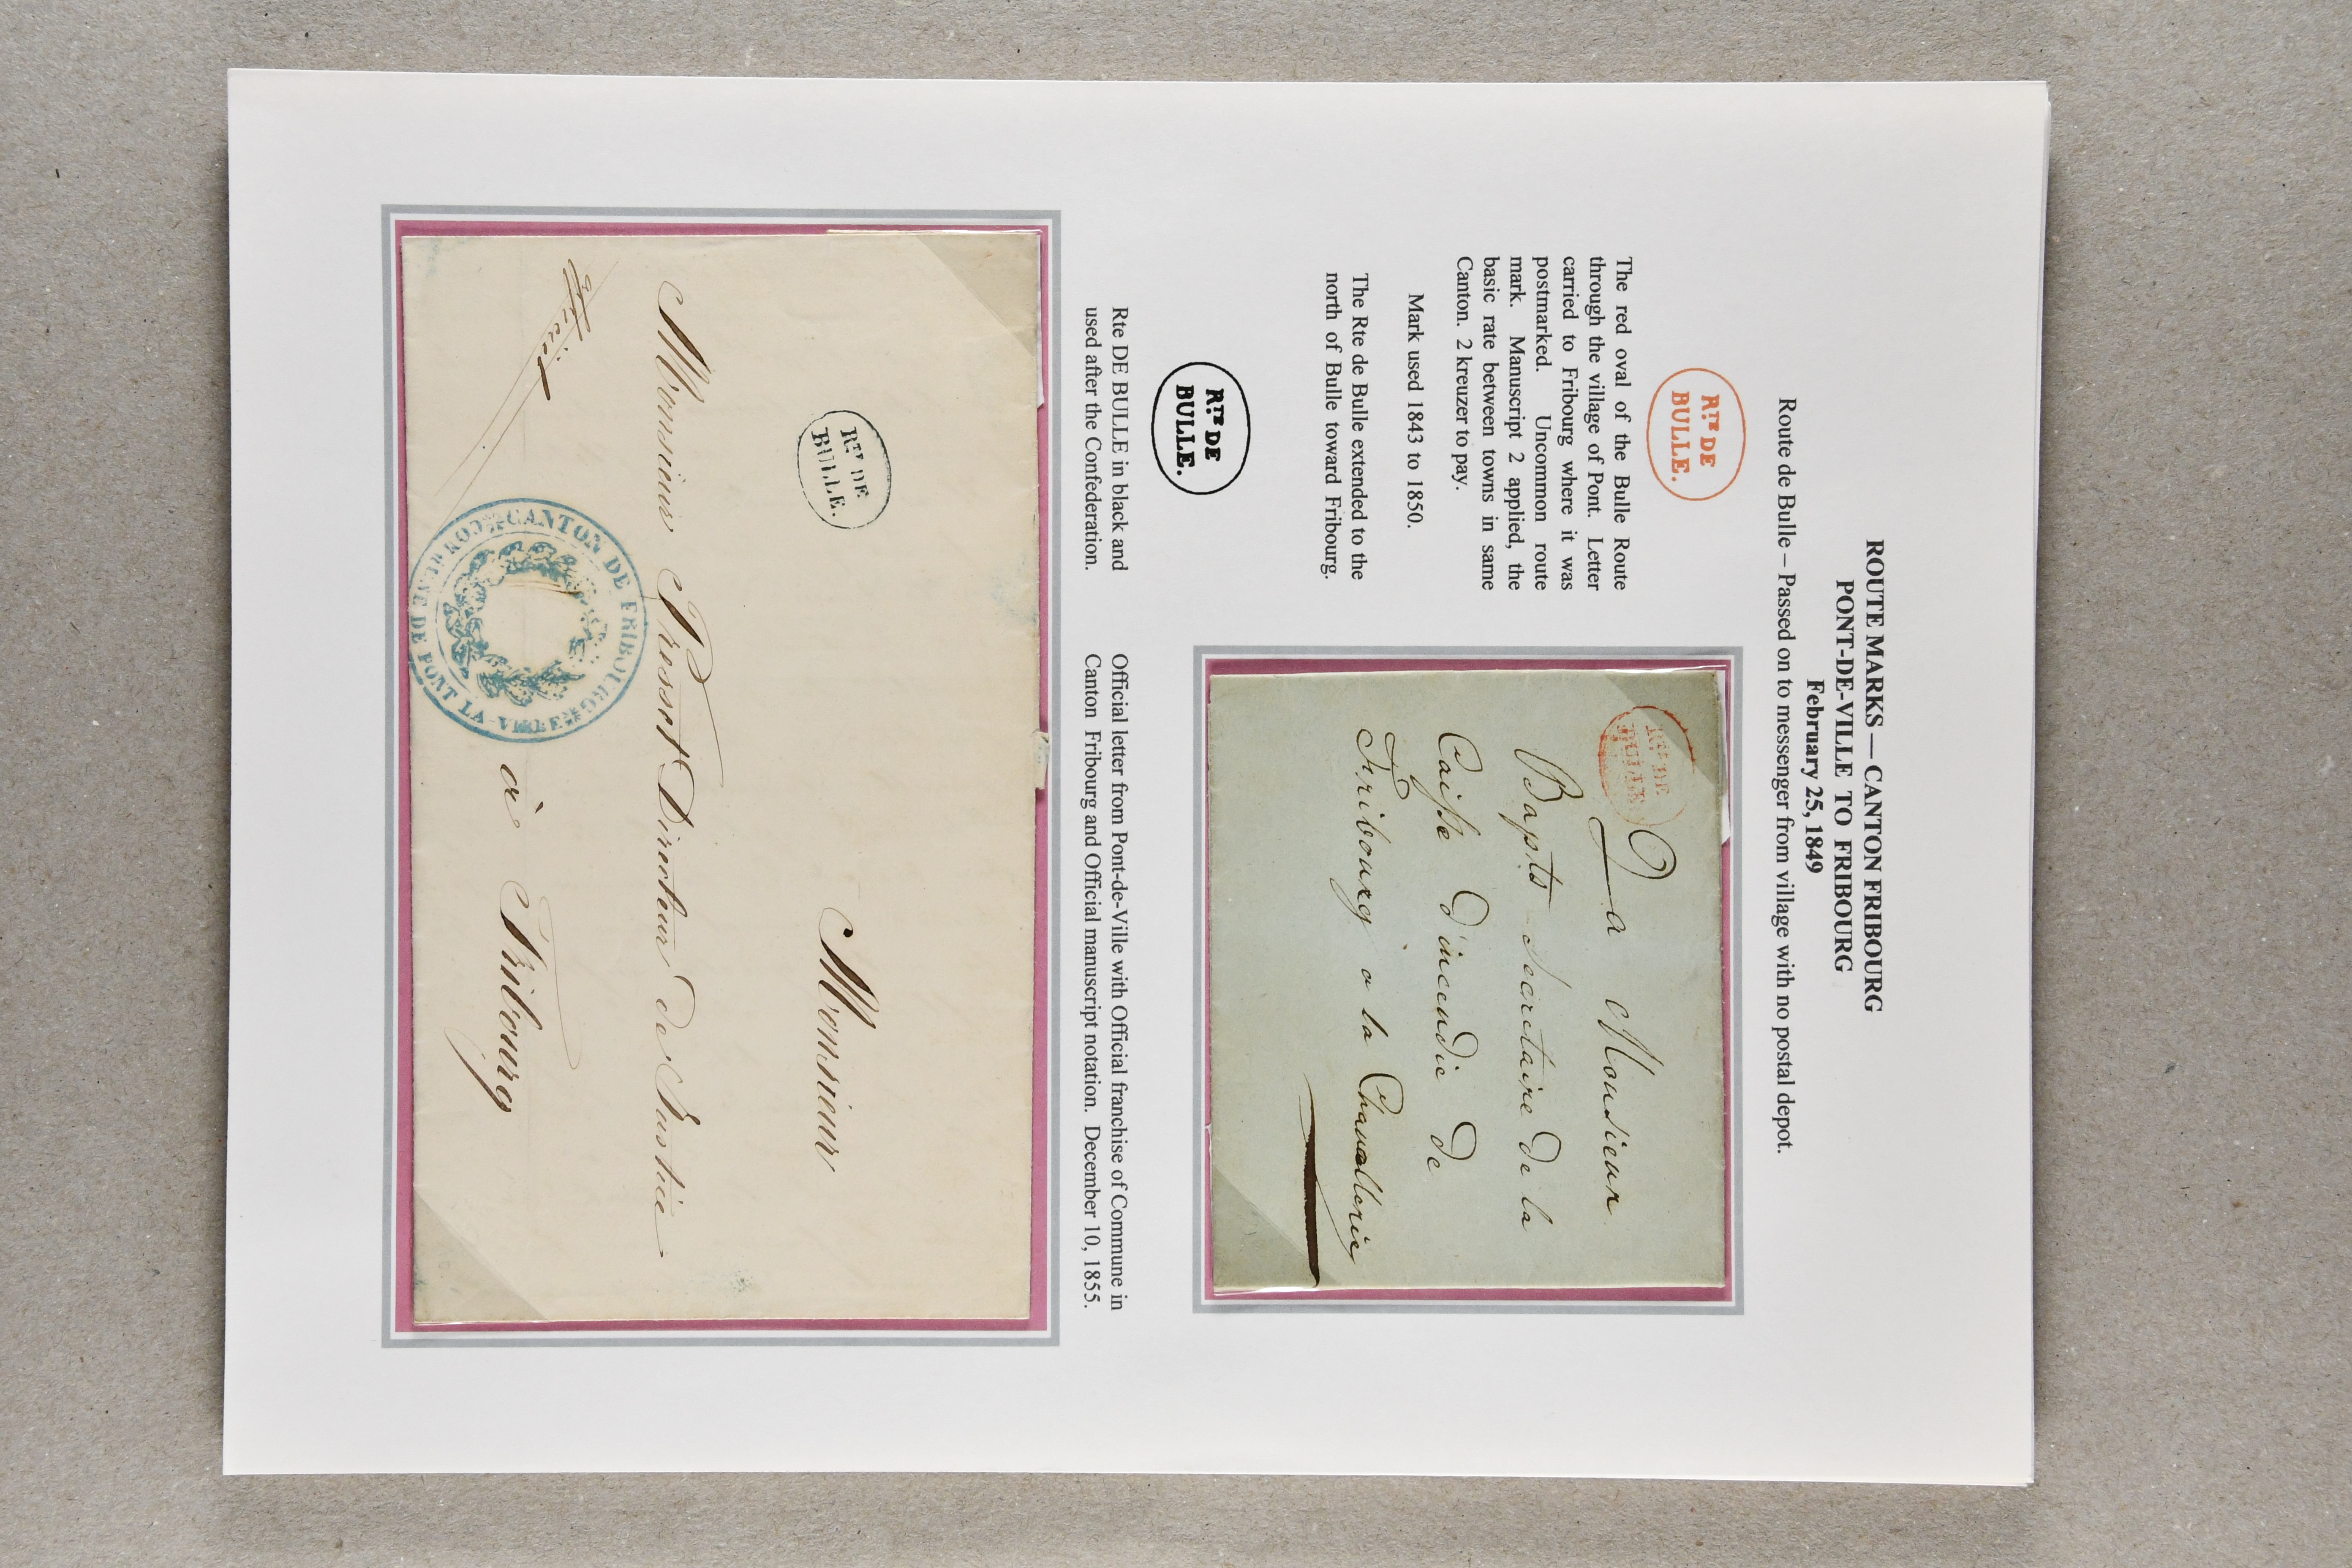 ROUTE MARKS — CANTON FRIBOURG
PONT-DE-VILLE TO FRIBOURG
February 25, 1849
Route de Bulle – Passed on to messenger from village with no postal depot.
RTE DE
BULLE.
The red oval of the Bulle Route
through the village of Pont. Letter
carried to Fribourg where it was
postmarked. Uncommon route
mark. Manuscript 2 applied, the
basic rate between towns in same
Canton. 2 kreuzer to pay.
Mark used 1843 to 1850.
The Rte de Bulle extended to the
north of Bulle toward Fribourg.
RTE DE
BULLE
A Monsieur
Bapts Secretaire de la
Caisse d'incendie de
Fribourg a la Chancellerie
RTE DE
BULLE.
Rte DE BULLE in black and
used after the Confederation.
Official letter from Pont-de-Ville with Official franchise of Commune in
Canton Fribourg and Official manuscript notation. December 10, 1855.
RTE DE
BULLE.
Monsieur
Monsieur Directeur de Justice
à Fribourg
CANTON DE FRIBOURG
COMMUNE DE PONT-LA-VILLE